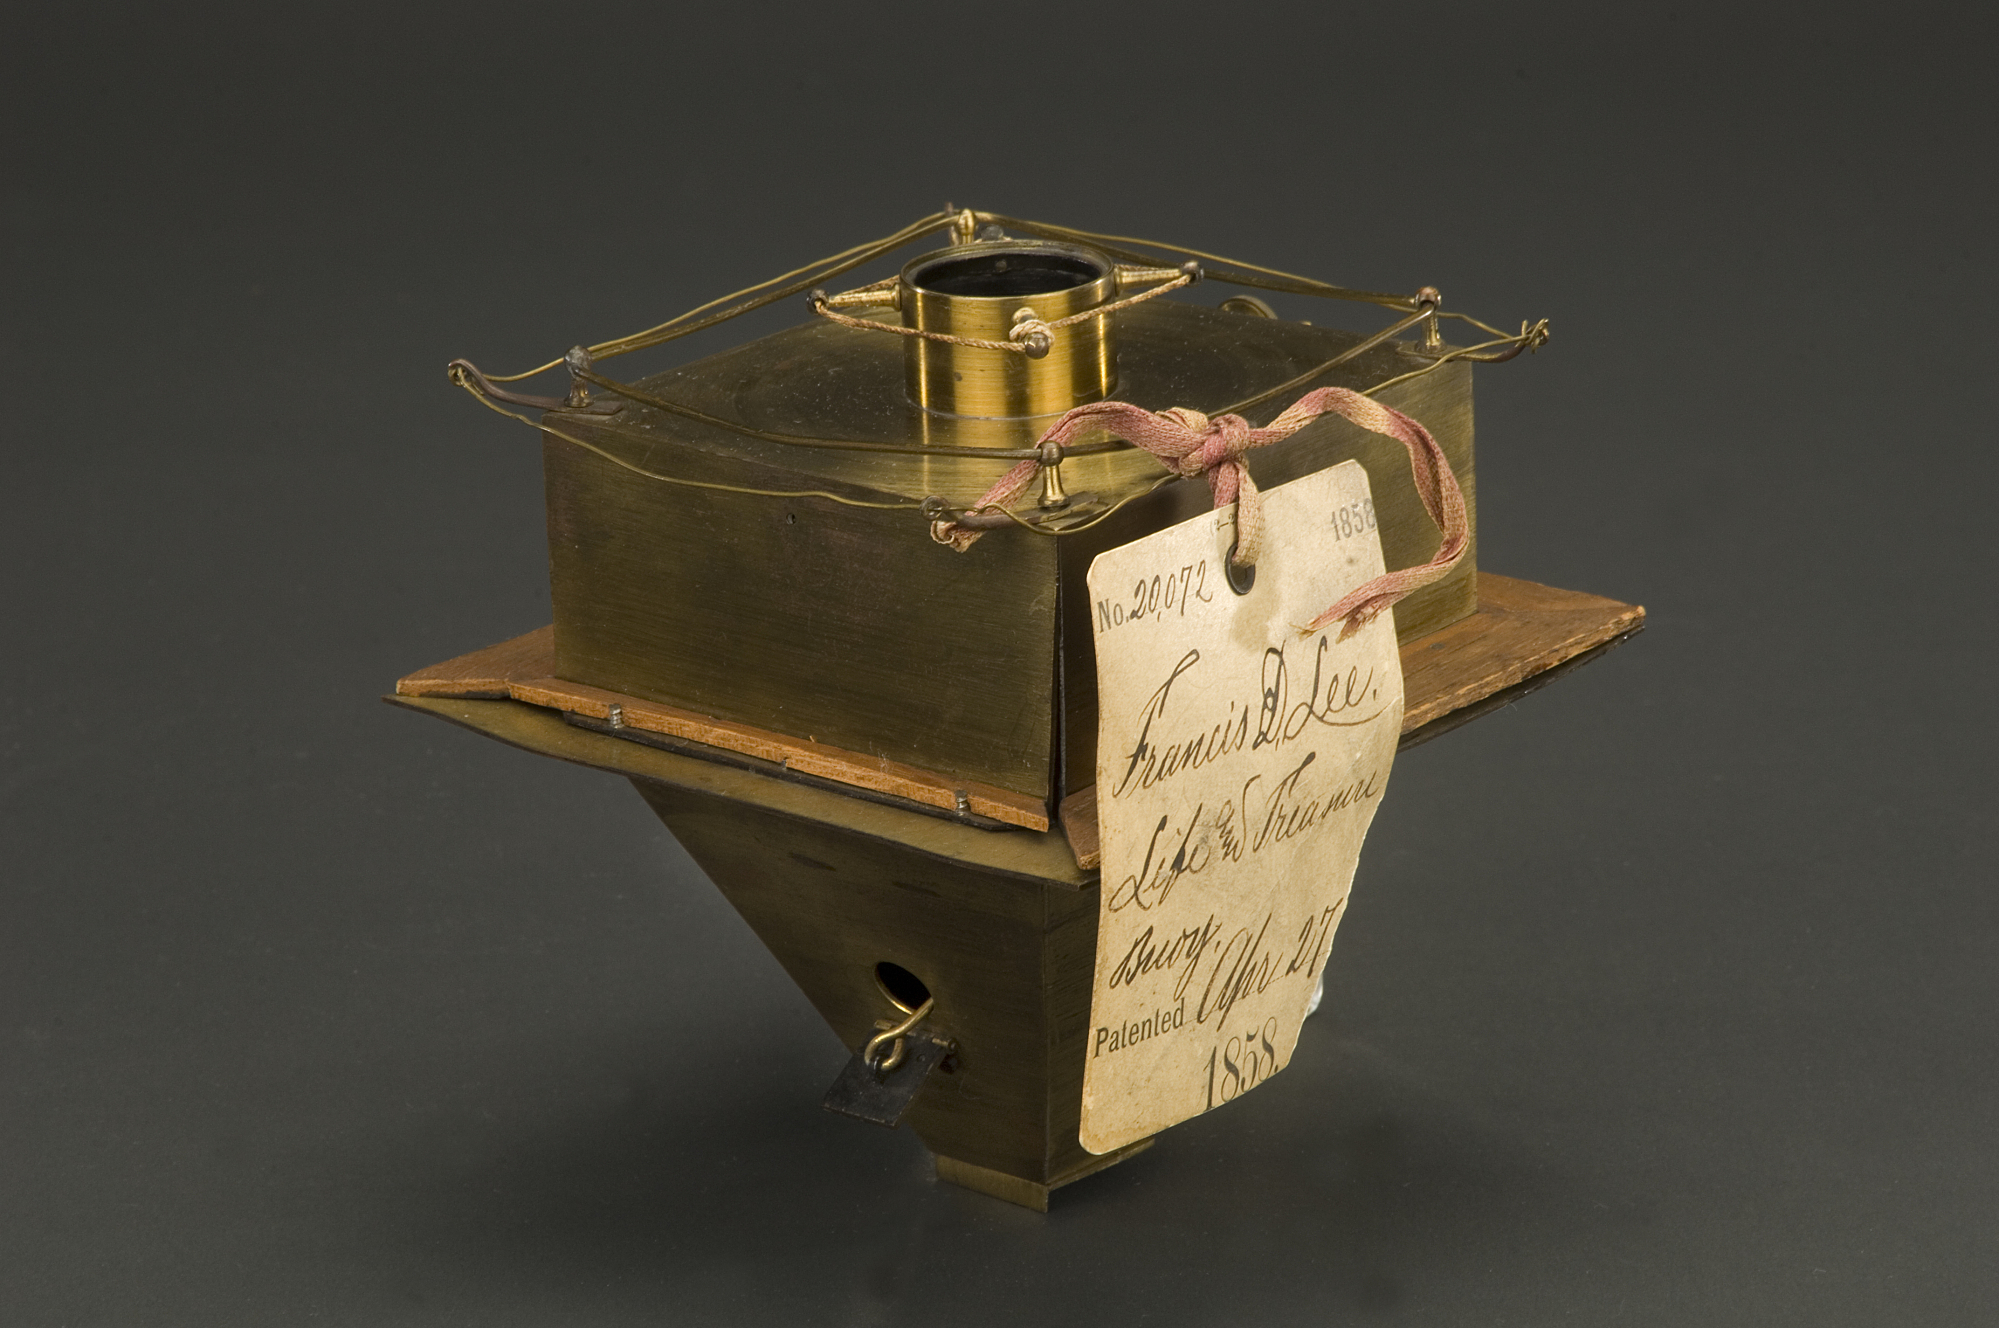 1858
No. 20,072
Francis D. Lee.
Life and Treasure
Buoy.
Patented Apr 27
1858.